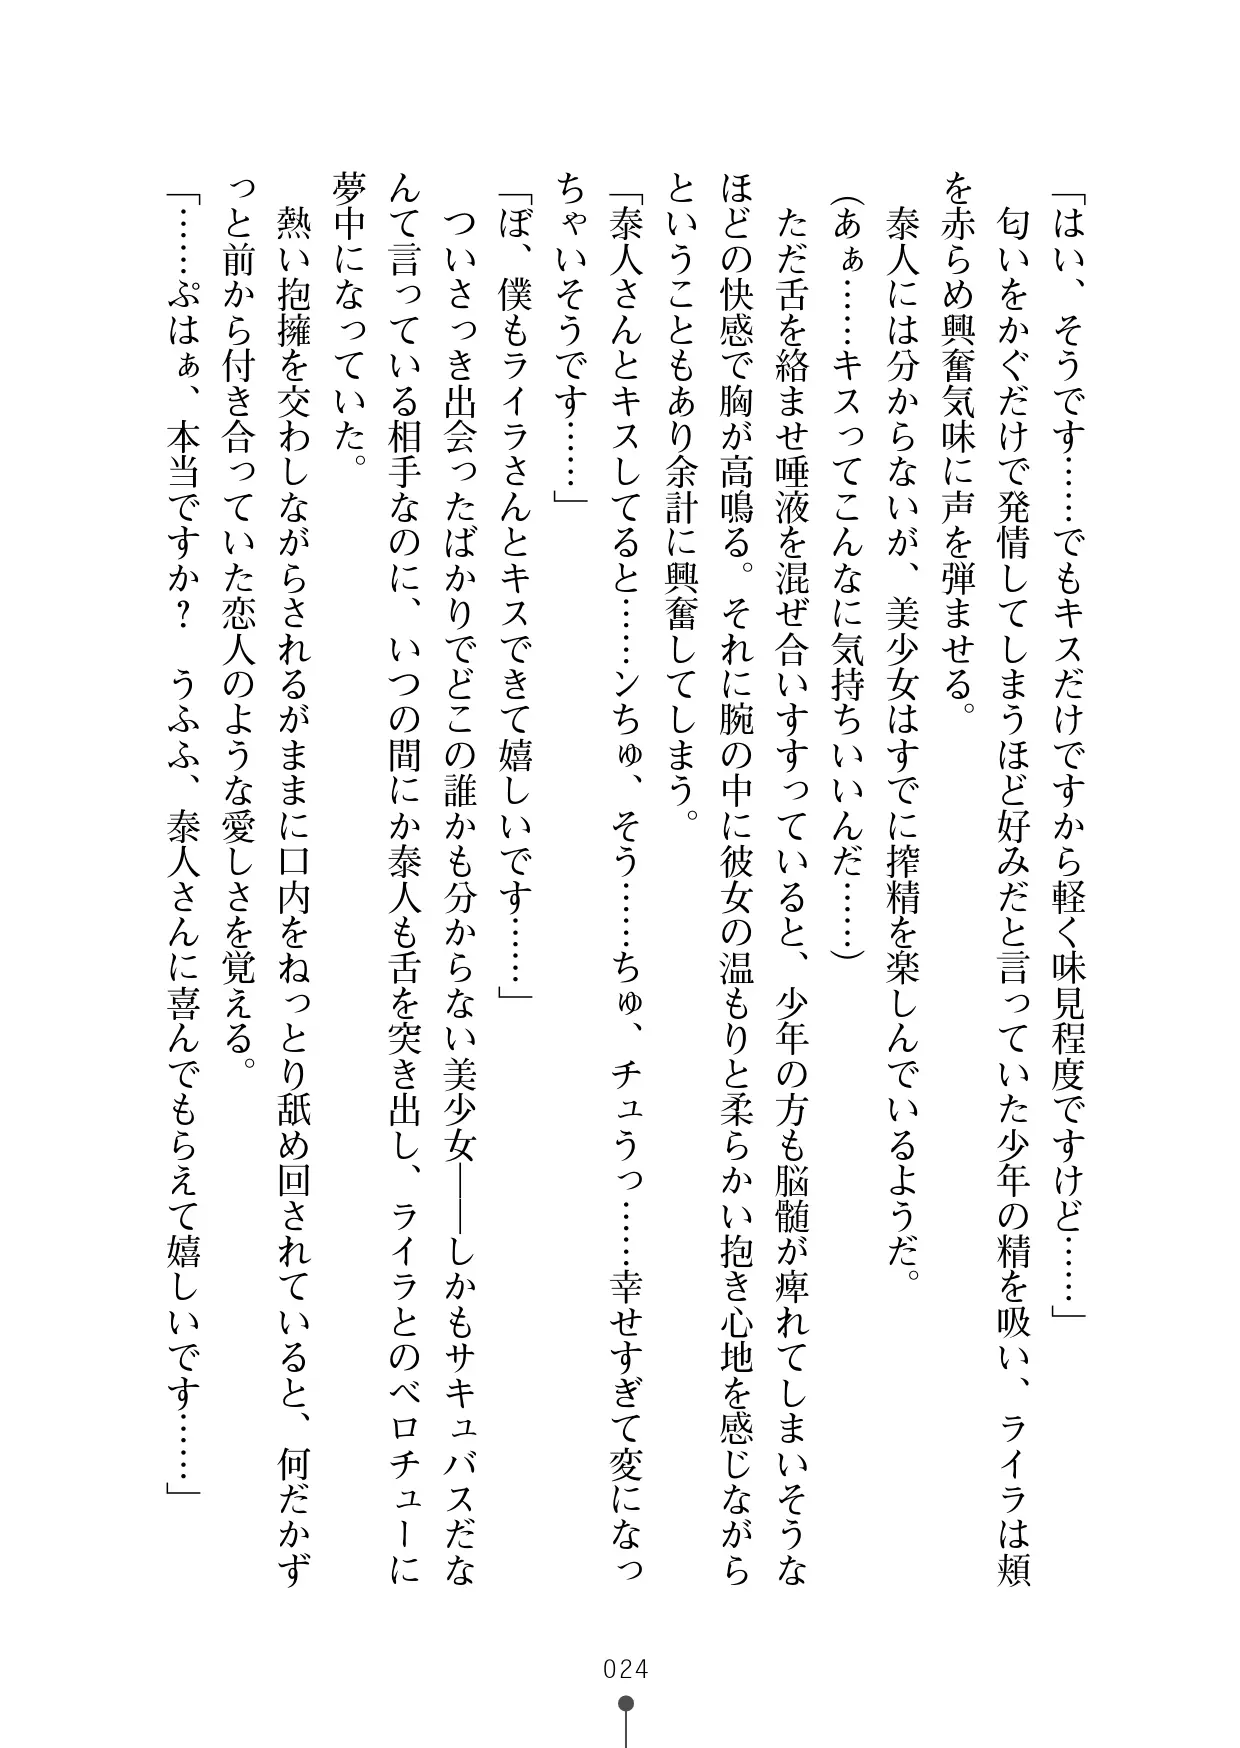 「はい、そうです……でもキスだけですから軽く味見程度ですけど……」
　匂いをかぐだけで発情してしまうほど好みだと言っていた少年の精を吸い、ライラは頬
を赤らめ興奮気味に声を弾ませる。
　泰人には分からないが、美少女はすでに搾精を楽しんでいるようだ。
（あぁ……キスってこんなに気持ちいいんだ……）
　ただ舌を絡ませ唾液を混ぜ合いすすっていると、少年の方も脳髄が痺れてしまいそうな
ほどの快感で胸が高鳴る。それに腕の中に彼女の温もりと柔らかい抱き心地を感じながら
ということもあり余計に興奮してしまう。
「泰人さんとキスしてると……ンちゅ、そう……ちゅ、チュうっ……幸せすぎて変になっ
ちゃいそうです……」
「ぼ、僕もライラさんとキスできて嬉しいです……」
　ついさっき出会ったばかりでどこの誰かも分からない美少女――しかもサキュバスだな
んて言っている相手なのに、いつの間にか泰人も舌を突き出し、ライラとのベロチューに
夢中になっていた。
　熱い抱擁を交わしながらされるがままに口内をねっとり舐め回されていると、何だかず
っと前から付き合っていた恋人のような愛しさを覚える。
「……ぷはぁ、本当ですか？　うふふ、泰人さんに喜んでもらえて嬉しいです……」
024